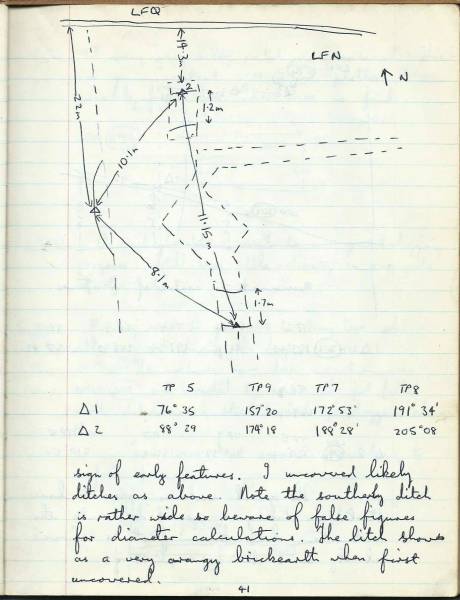 LFQ
LFN
↑ N
14.3m
22m
2
1.2m
10.1m
11.15m
8.1m
1.7m
TP 5 TP9 TP7 TP8
Δ 1 76° 35 157° 20 172° 53' 191° 34'
Δ 2 88° 29 174° 18 188° 28' 205° 08
sign of early features. I uncovered likely
ditches as above. Note the southerly ditch
is rather wide so beware of false figures
for diameter calculations. The ditch shows
as a very orangy brickearth when first
uncovered.
41